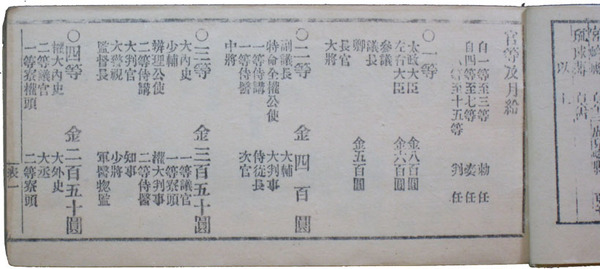 官等及月給
自一等至三等 勅任
自四等至七等 奏任
八等至十五等 判任
〇一等
太政大臣 金八百圓
左右大臣 金六百圓
參議
議長
卿 金五百圓
長官
大將
〇二等 金四百圓
副議長 大輔
特命全權公使 大判事
一等侍講 侍從長
一等侍醫 次官
中將
〇三等 金三百五十圓
大内史 一等議官
少輔 一等寮頭
辨理公使 權大判事
二等侍講 二等侍醫
大判官 知事
大警視 少將
監督長 軍醫總監
〇四等 金二百五十圓
權大内史 大外史
二等議官 大丞
一等寮權頭 二等寮頭
表一